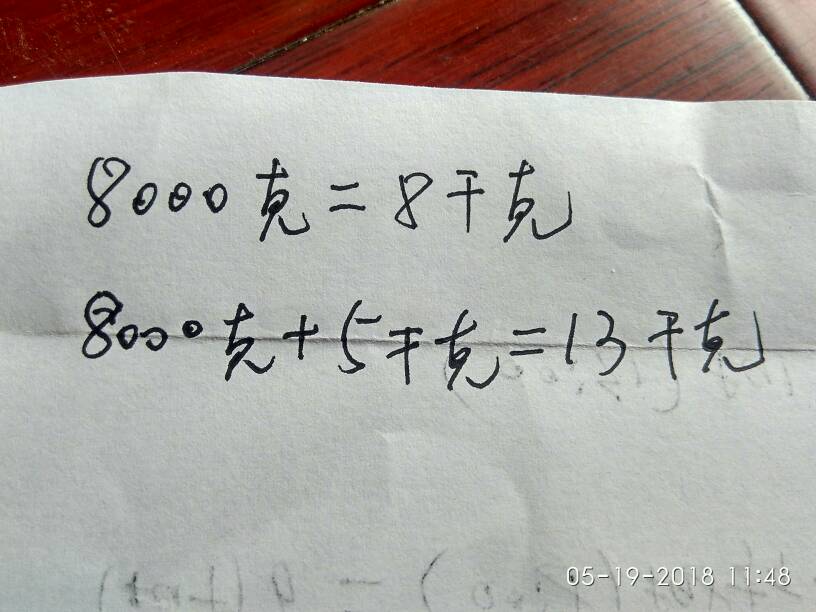 8000克=8千克
8000克+5千克=13千克
05-19-2018 11:48